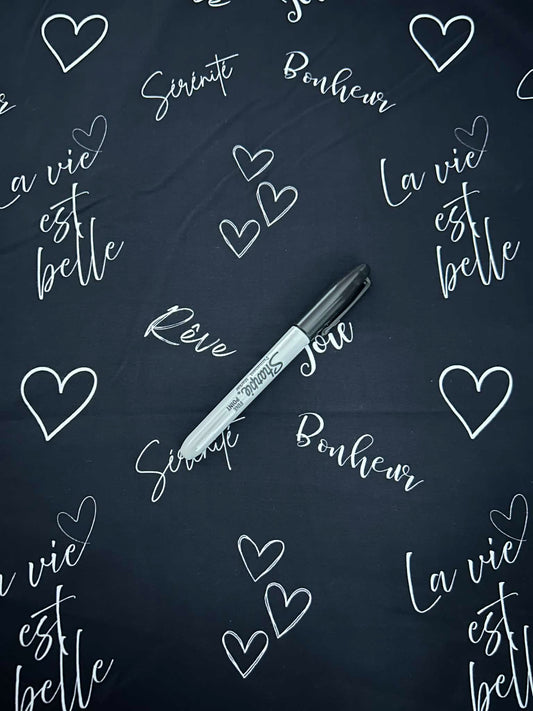 Joie
Sérénité
Bonheur
La vie
est
belle
La vie
est
belle
Rêve
Joie
Sharpie
FINE
POINT
Sérénité
Bonheur
La vie
est
belle
La vie
est
belle